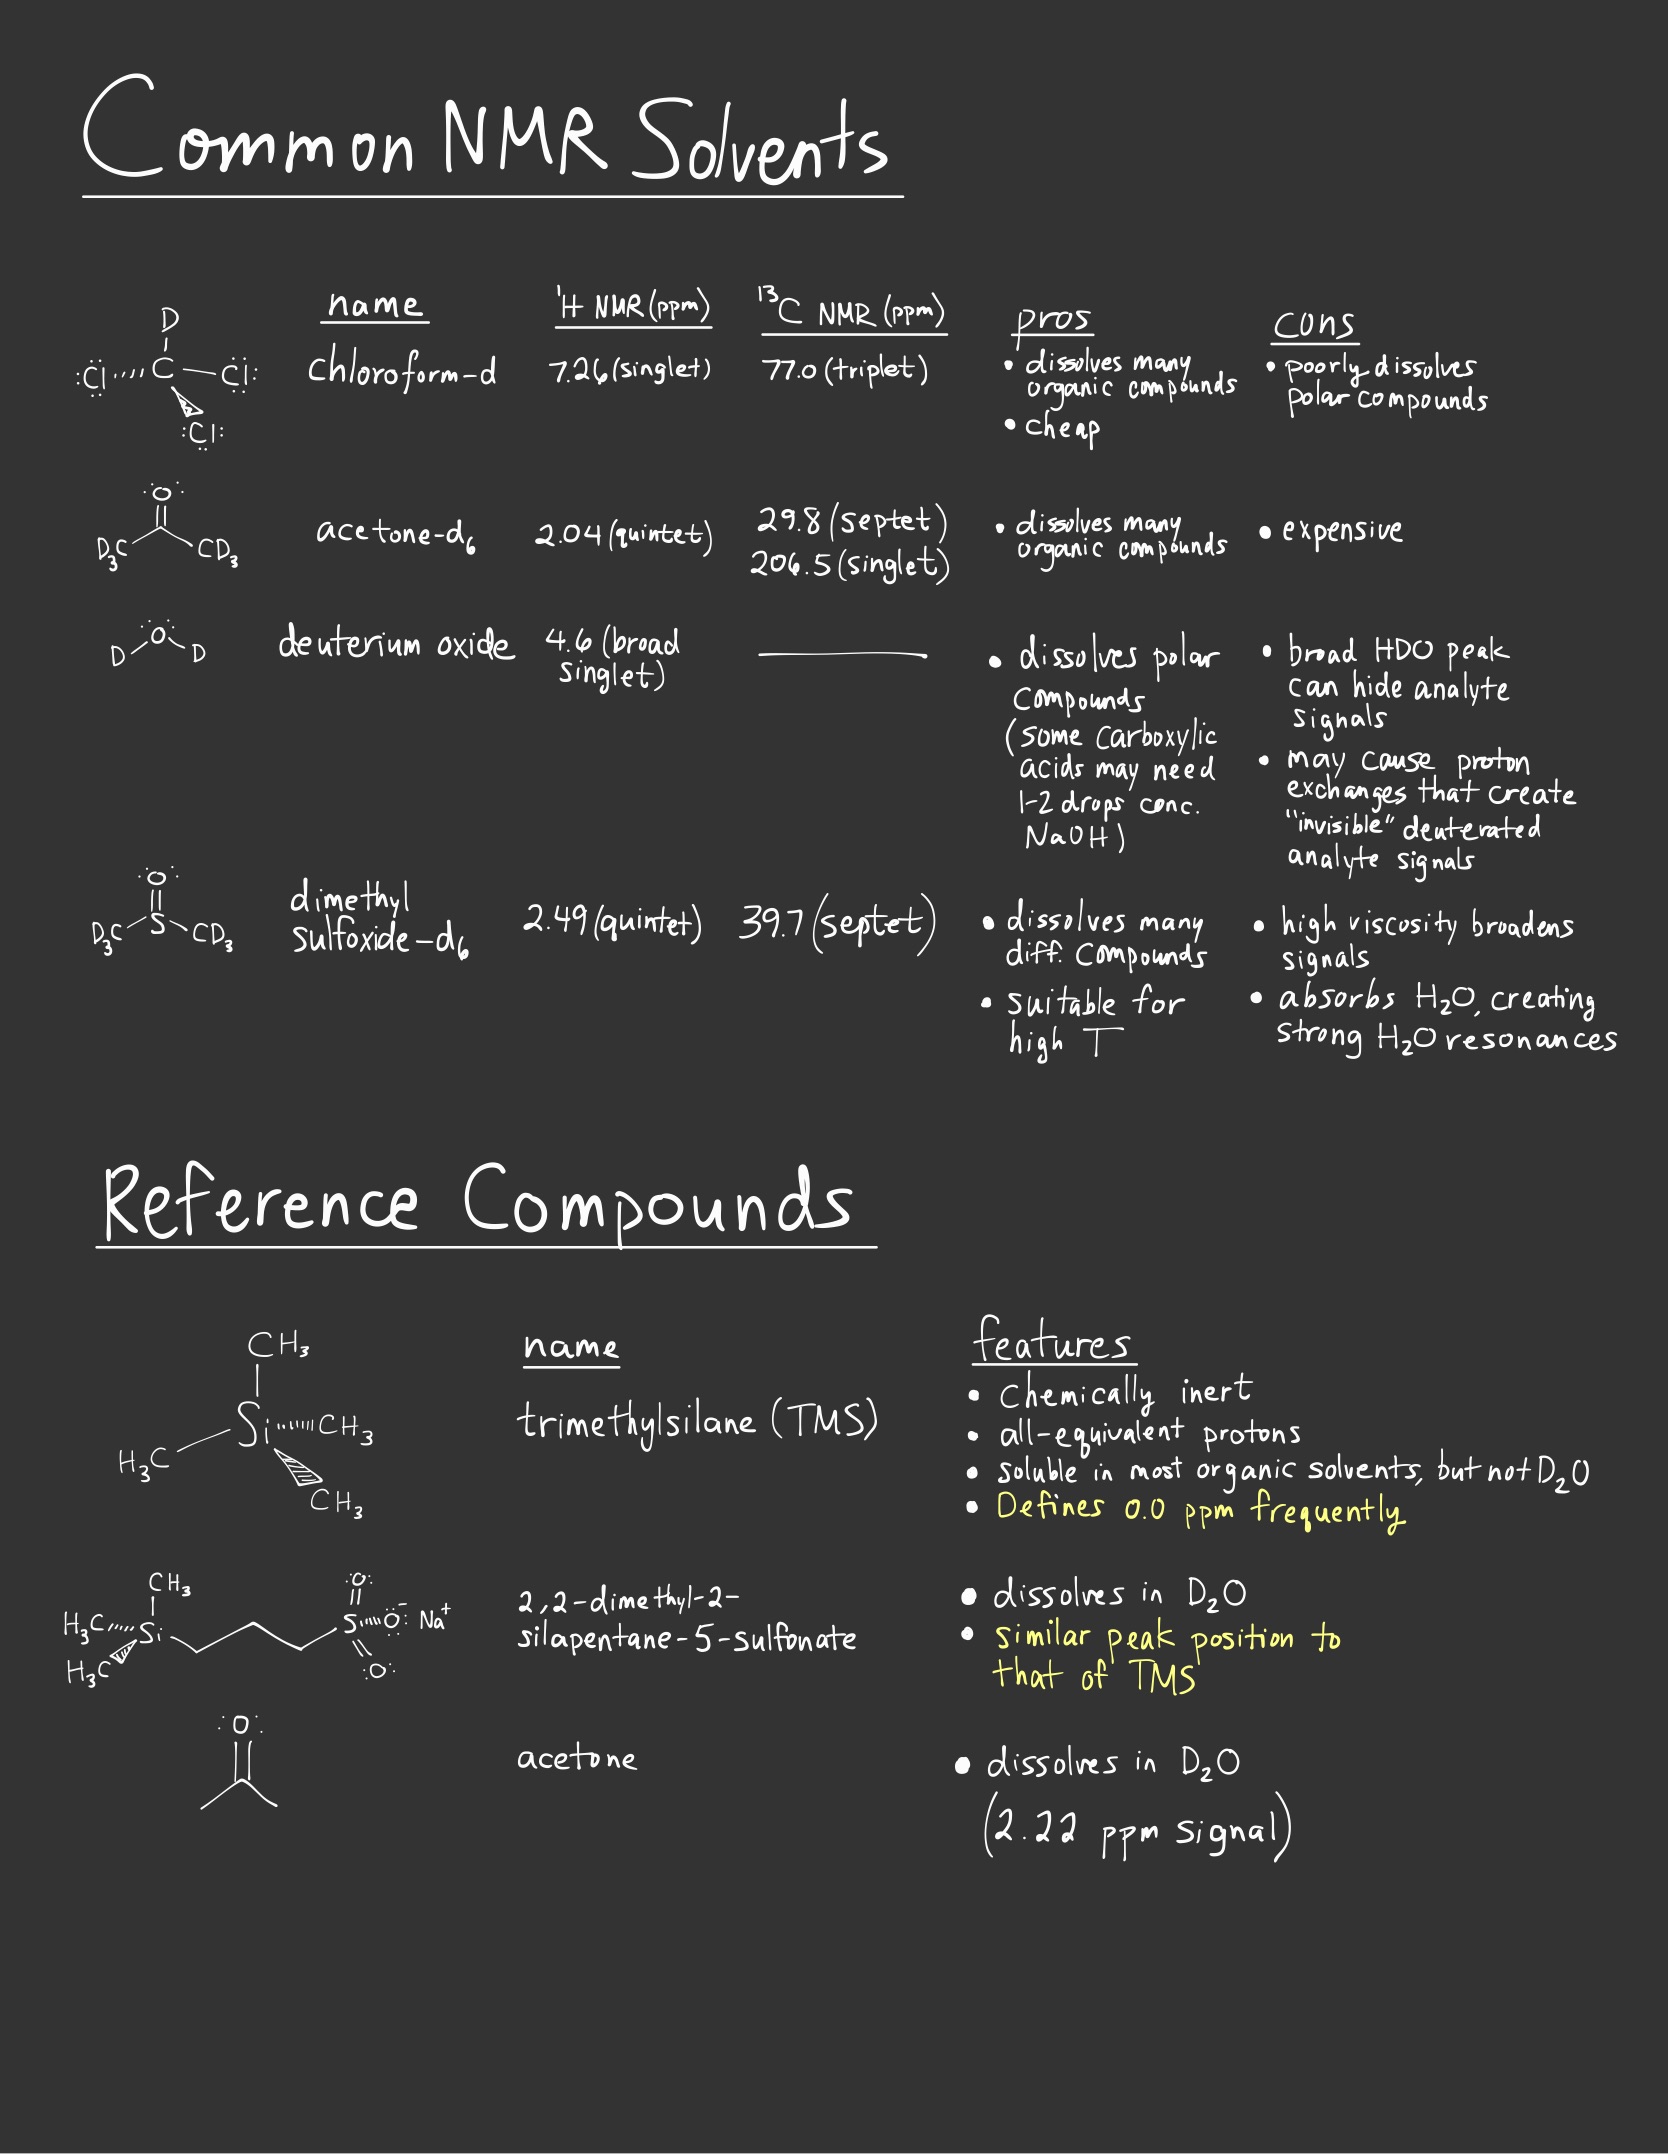 Common NMR Solvents
name
¹H NMR (ppm)
¹³C NMR (ppm)
pros
cons
D
:Cl C Cl:
:Cl:
chloroform-d
7.26 (singlet)
77.0 (triplet)
• dissolves many
organic compounds
• cheap
• poorly dissolves
polar compounds
O
D₃C CD₃
acetone-d₆
2.04 (quintet)
29.8 (septet)
206.5 (singlet)
• dissolves many
organic compounds
• expensive
D O D
deuterium oxide
4.6 (broad
singlet)
• dissolves polar
compounds
(some carboxylic
acids may need
1-2 drops conc.
NaOH)
• broad HDO peak
can hide analyte
signals
• may cause proton
exchanges that create
"invisible" deuterated
analyte signals
O
D₃C S CD₃
dimethyl
sulfoxide-d₆
2.49 (quintet)
39.7 (septet)
• dissolves many
diff. compounds
• suitable for
high T
• high viscosity broadens
signals
• absorbs H₂O, creating
strong H₂O resonances
Reference Compounds
name
features
CH₃
Si CH₃
H₃C
CH₃
trimethylsilane (TMS)
• Chemically inert
• all-equivalent protons
• soluble in most organic solvents, but not D₂O
• Defines 0.0 ppm frequently
CH₃ O
H₃C Si S O⁻ Na⁺
H₃C O
2,2-dimethyl-2-
silapentane-5-sulfonate
• dissolves in D₂O
• similar peak position to
that of TMS
O
acetone
• dissolves in D₂O
(2.22 ppm signal)